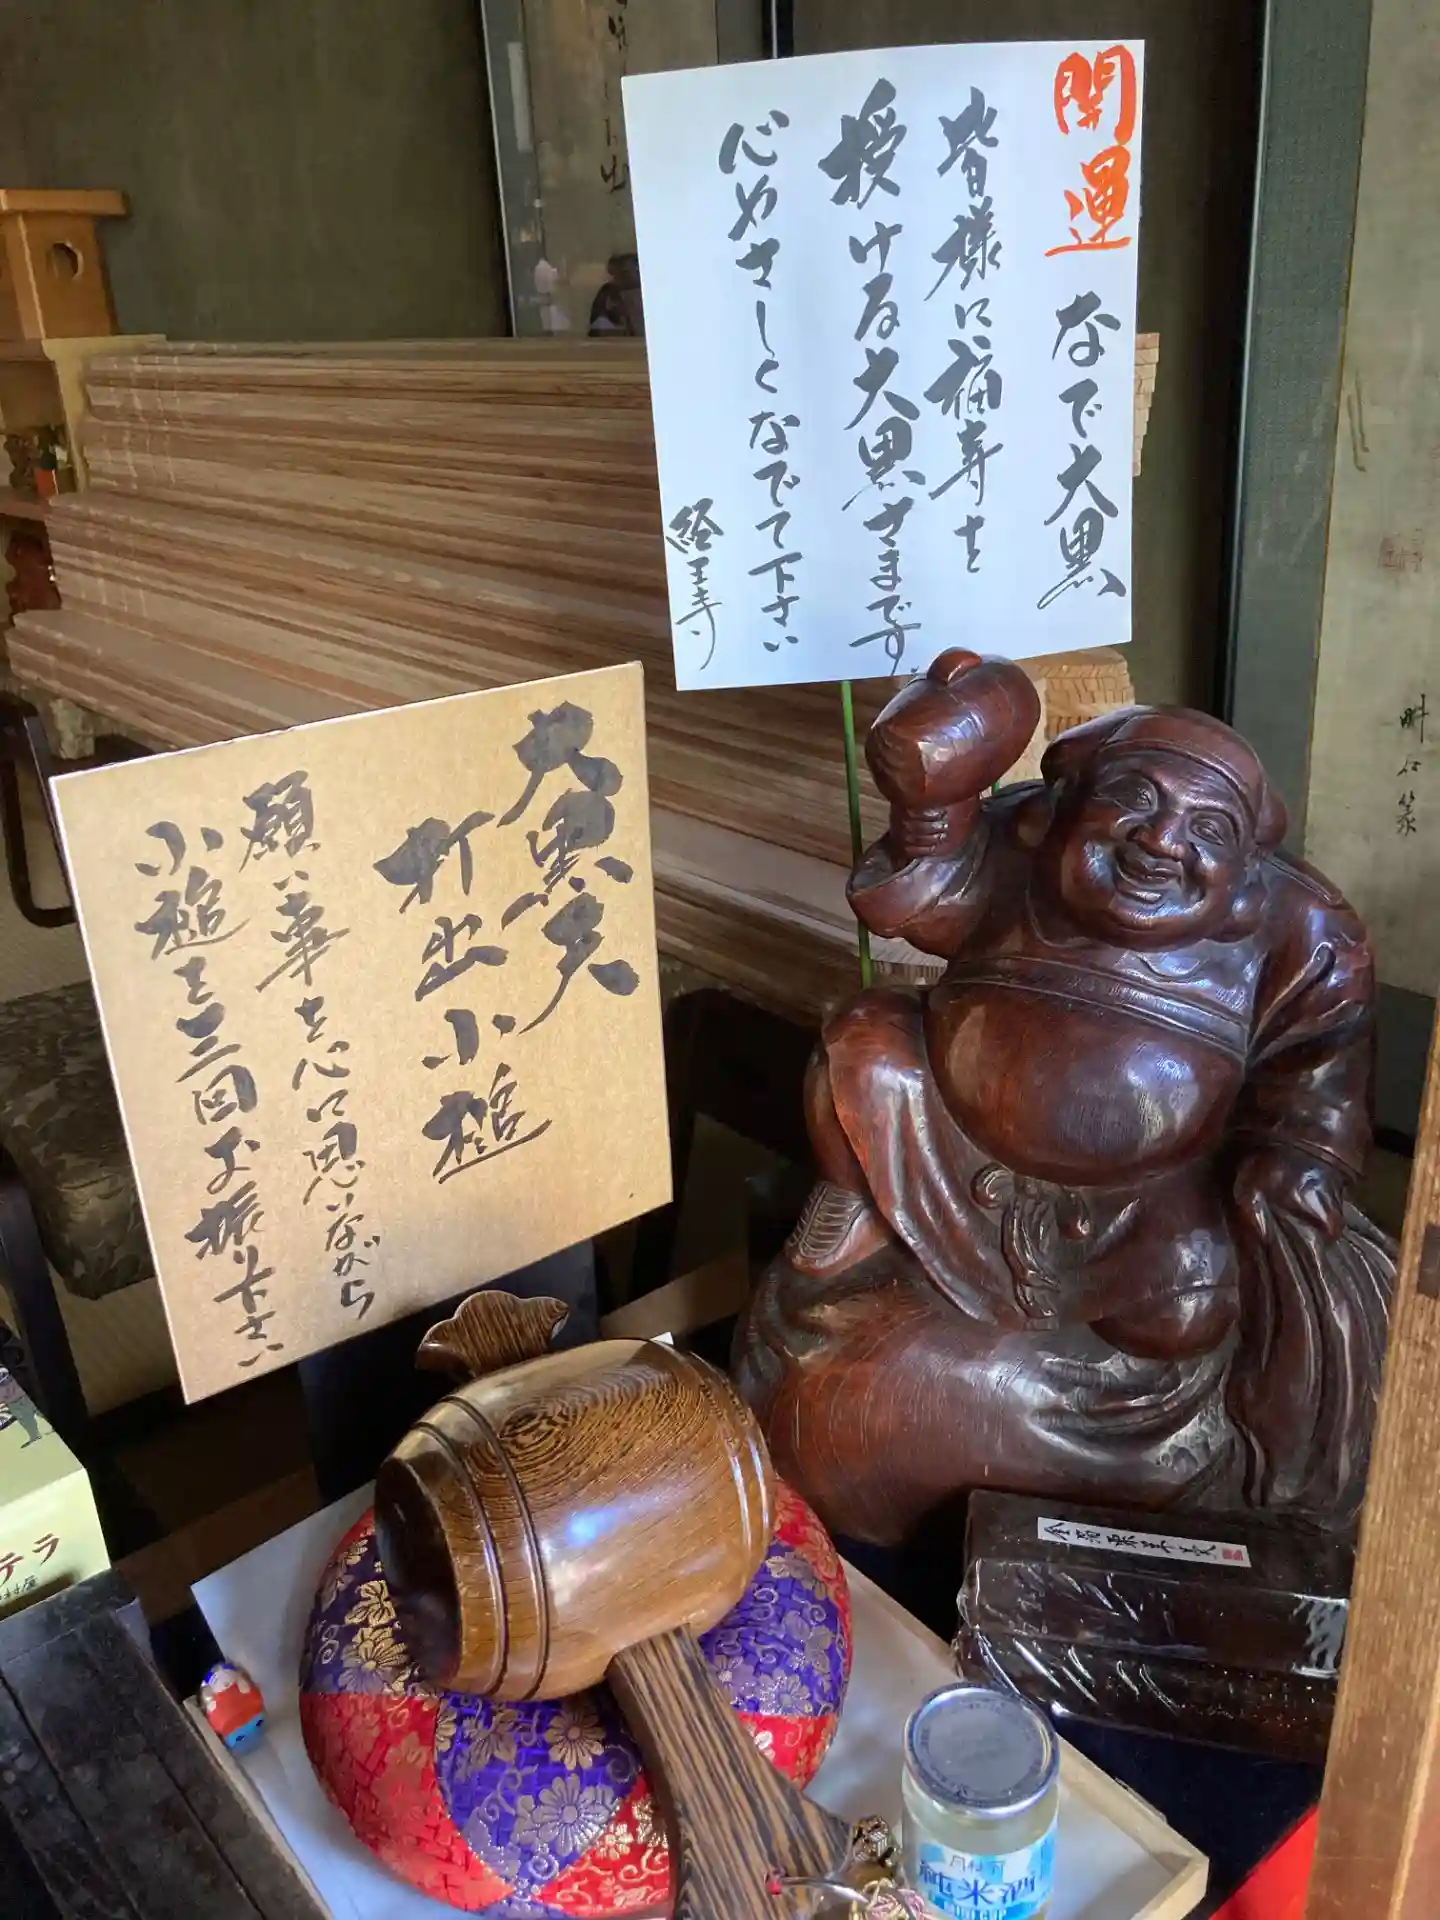 開運 なで大黒
皆様に福寿を
授ける大黒さまです。
心やさしくなでて下さい
経王寺
大黒天
打出小槌
願い事を心に思いながら
小槌を三回お振り下さい
テラ
村屋
純米酒
MINI CUP